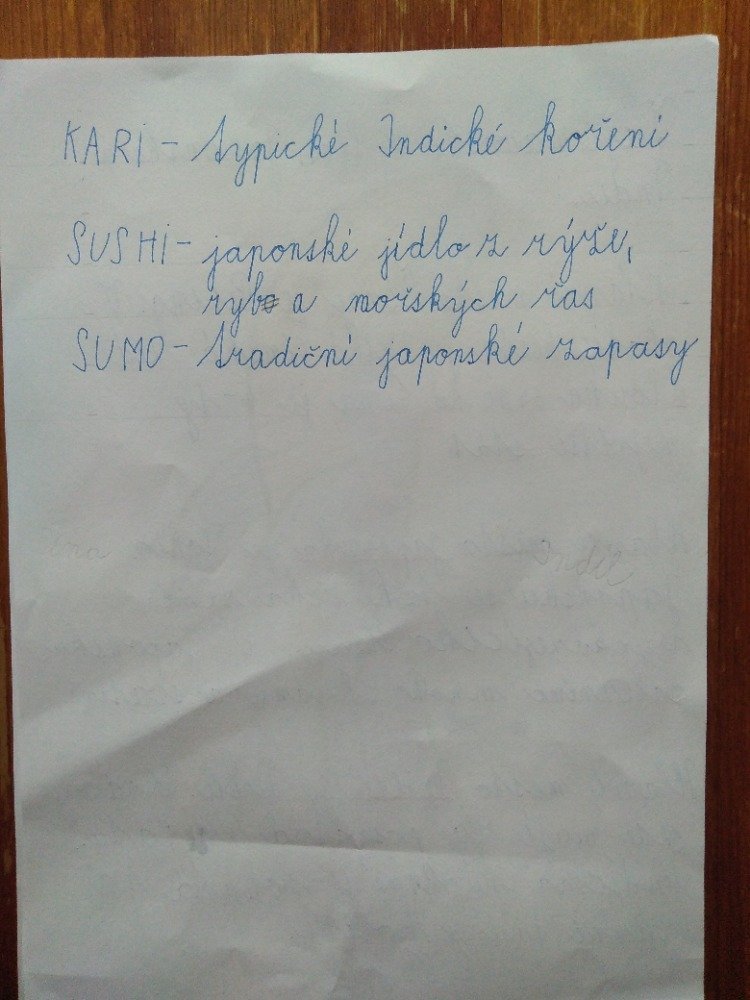 KARI - typické Indické koření
SUSHI - japonské jídlo z rýže,
ryb a mořských řas
SUMO - tradiční japonské zapasy